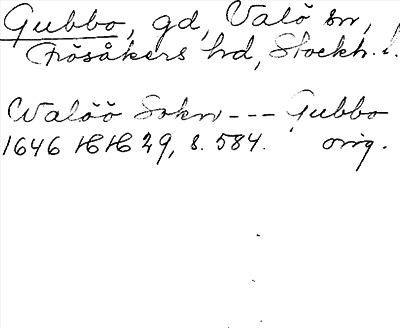 Gubbo, gd, Valö sn,
Frösåkers hd, Stockh. l.
Walöö Sokn --- Gubbo
1646 HH 29, s. 584. orig.